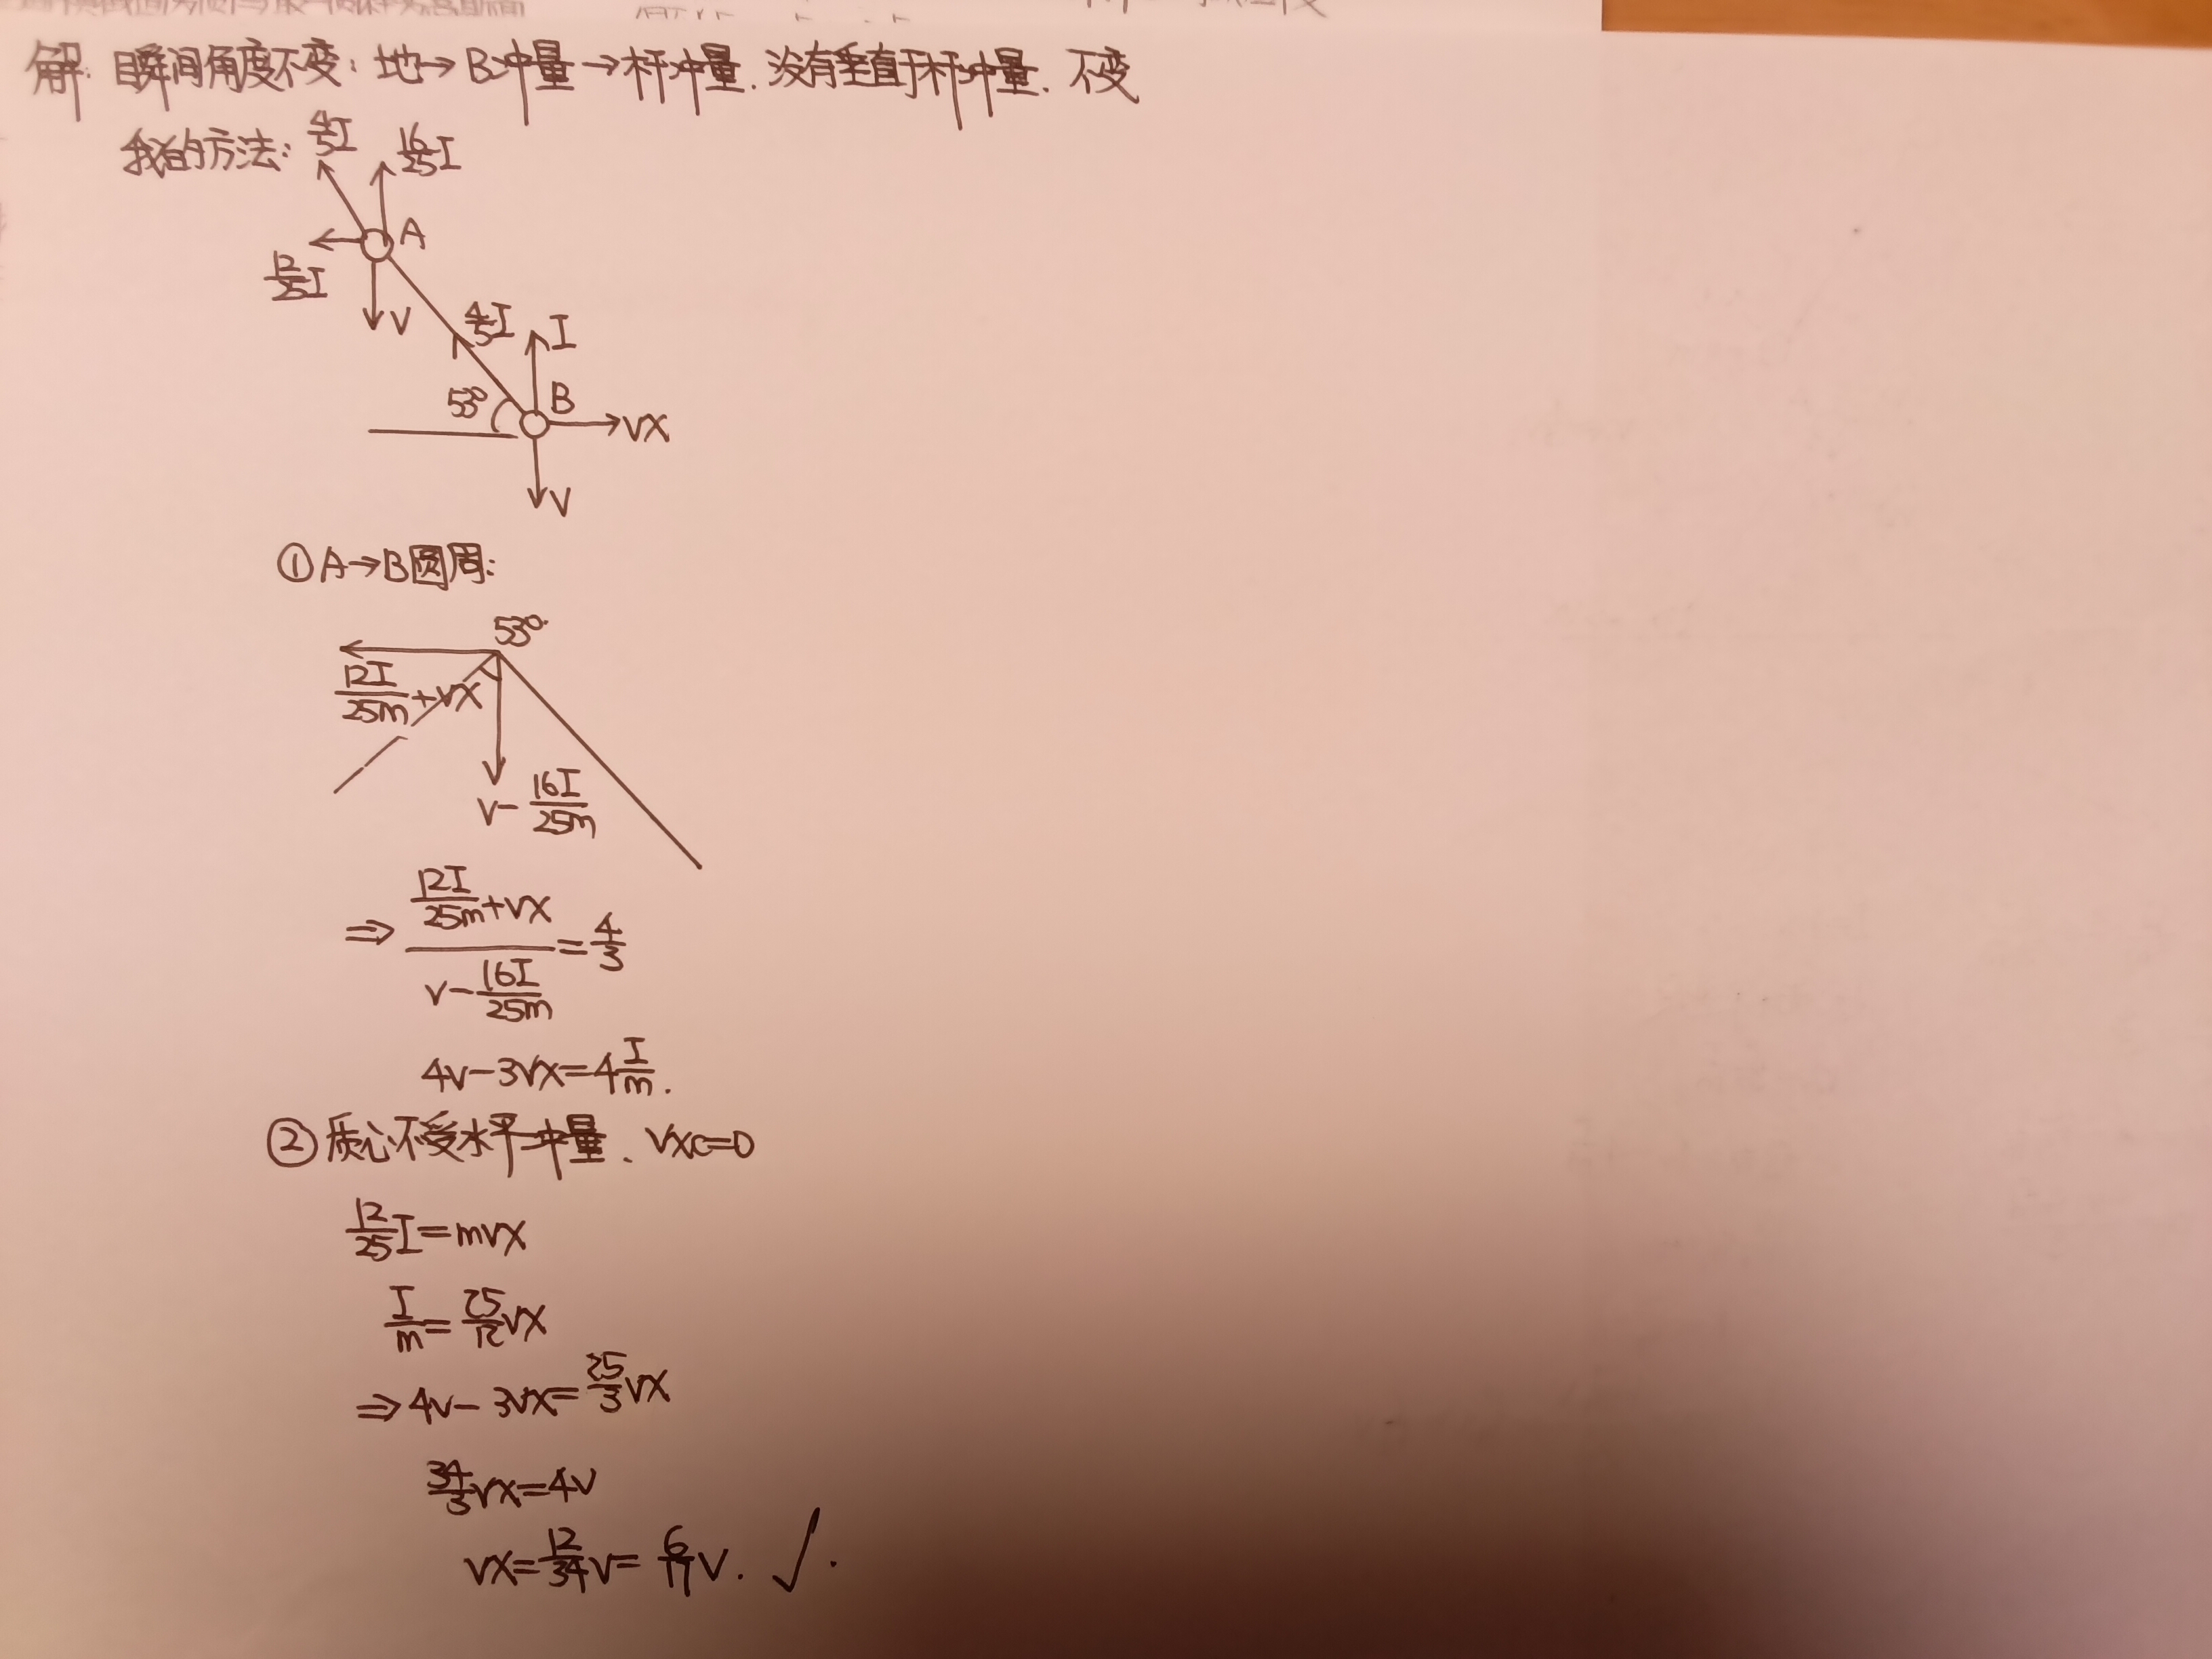 解: 瞬间角度不变: 地→B冲量→杆冲量. 没有垂直于杆冲量. 不变
我的方法:
4/5 I
16/25 I
A
12/25 I
V
4/5 I
I
53°
B
VX
V
① A→B圆周:
53°
12I/25m+VX
V-16I/25m
⇒ (12I/25m+VX)/(V-16I/25m)=4/3
4V-3VX=4 I/m.
② 质心不受水平冲量. VXC=0
12/25 I=mVX
I/m=25/12 VX
⇒4V-3VX=25/3 VX
34/3 VX=4V
VX=12/34 V=6/17 V. √.